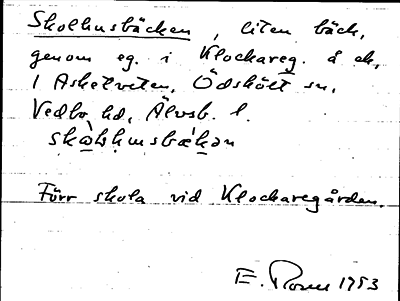 Skolhusbäcken, liten bäck,
genom eg. i Klockareg. å ek,
1 Askelveten, Ödskölt sn,
Vedbo hd, Älvsb. l.
skὼlshusbækən
Förr skola vid Klockaregården.
E. Rosen 1953